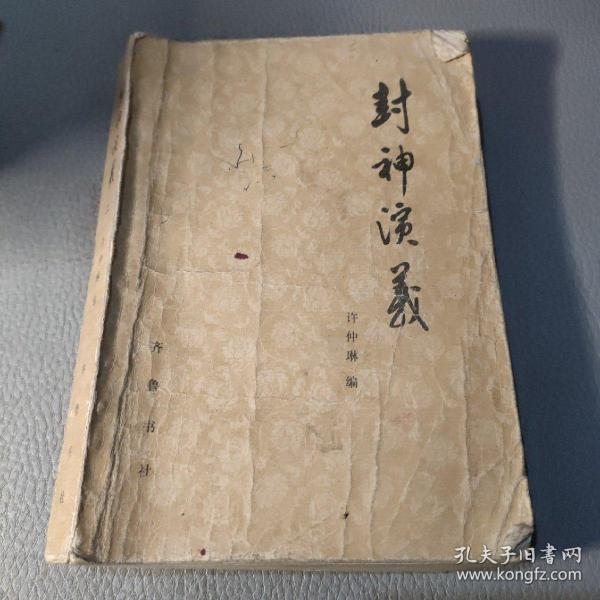 封神演義
许仲琳编
齐鲁书社
孔夫子旧书网
www.kongfz.com